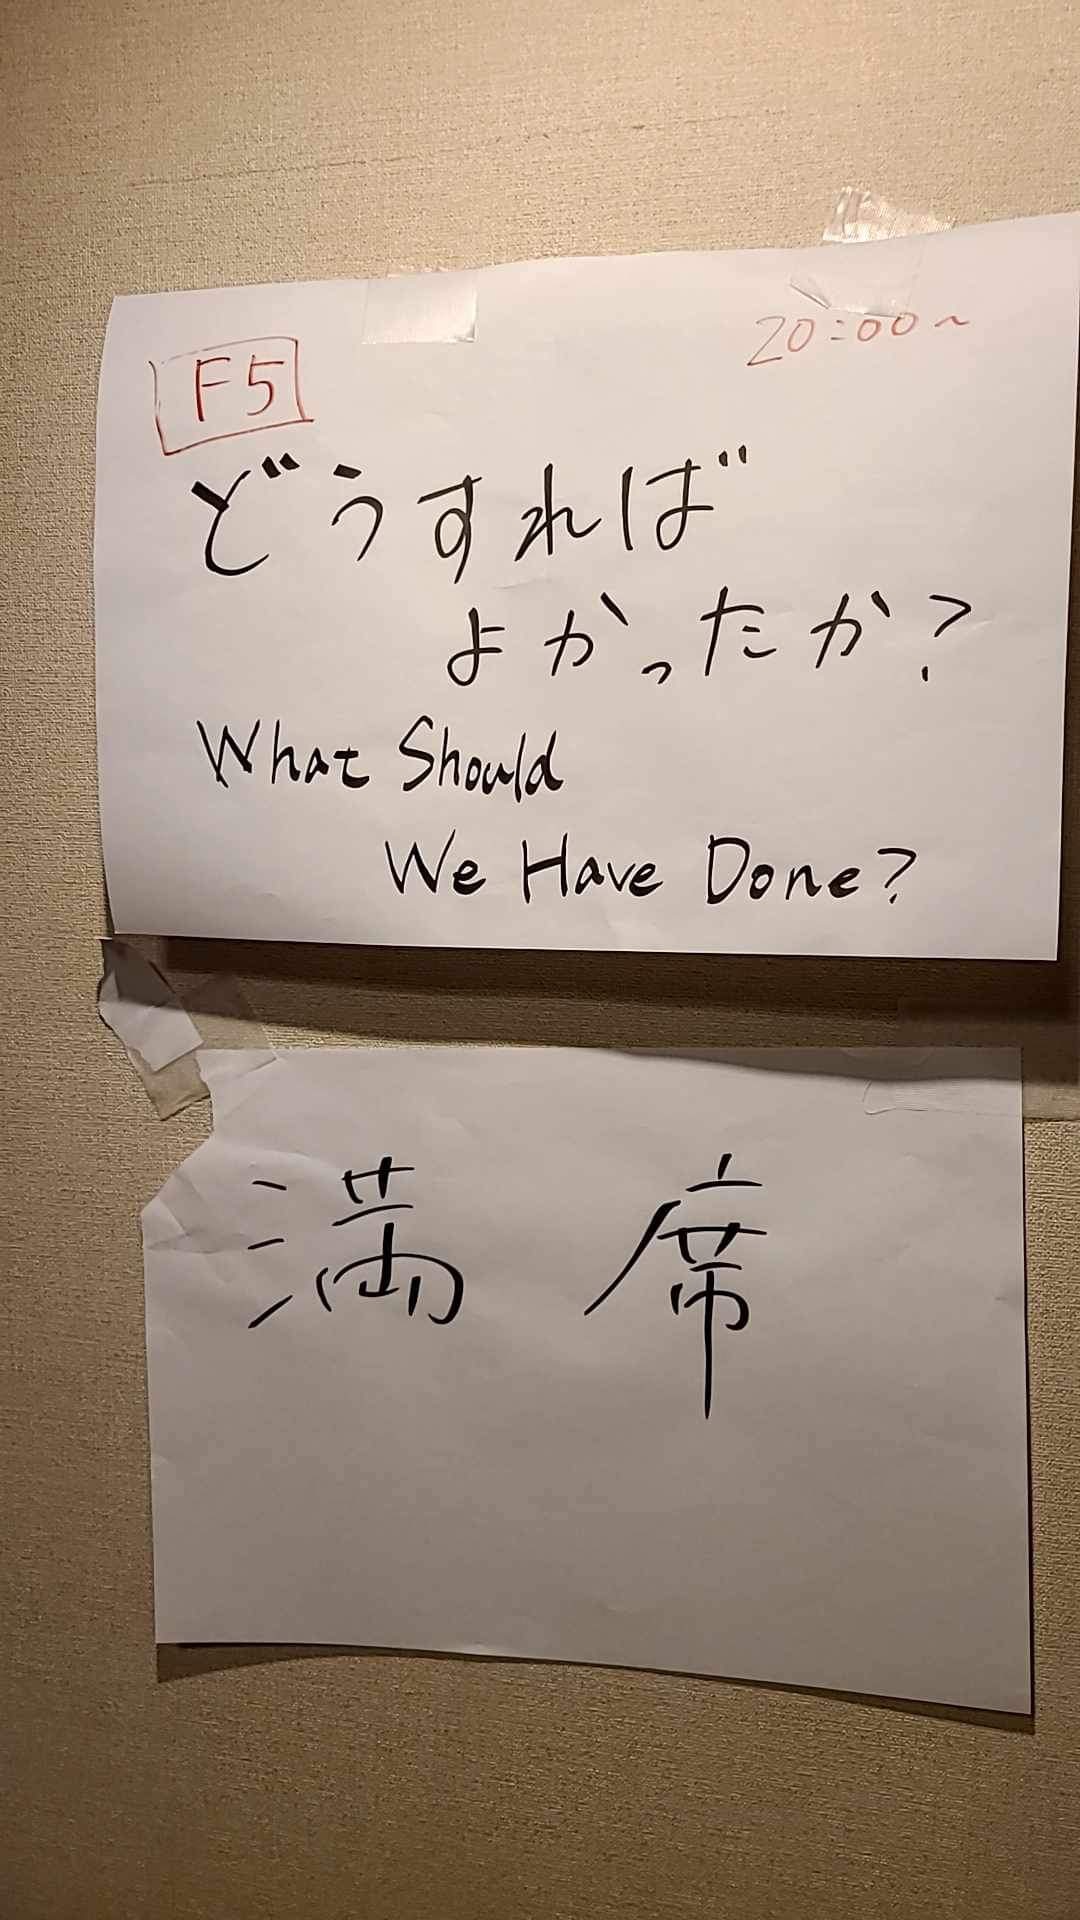 F5
20:00~
どうすれば
よかったか?
What Should
We Have Done?
満席